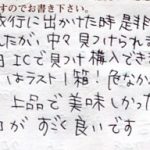 すのでお書き下さい。
旅行に出かけた時 是非
んたが、中々見つけられま
日 ICで見つけ購入でき
はラスト1箱!危なか
上品で美味しかった
がすごく良いです